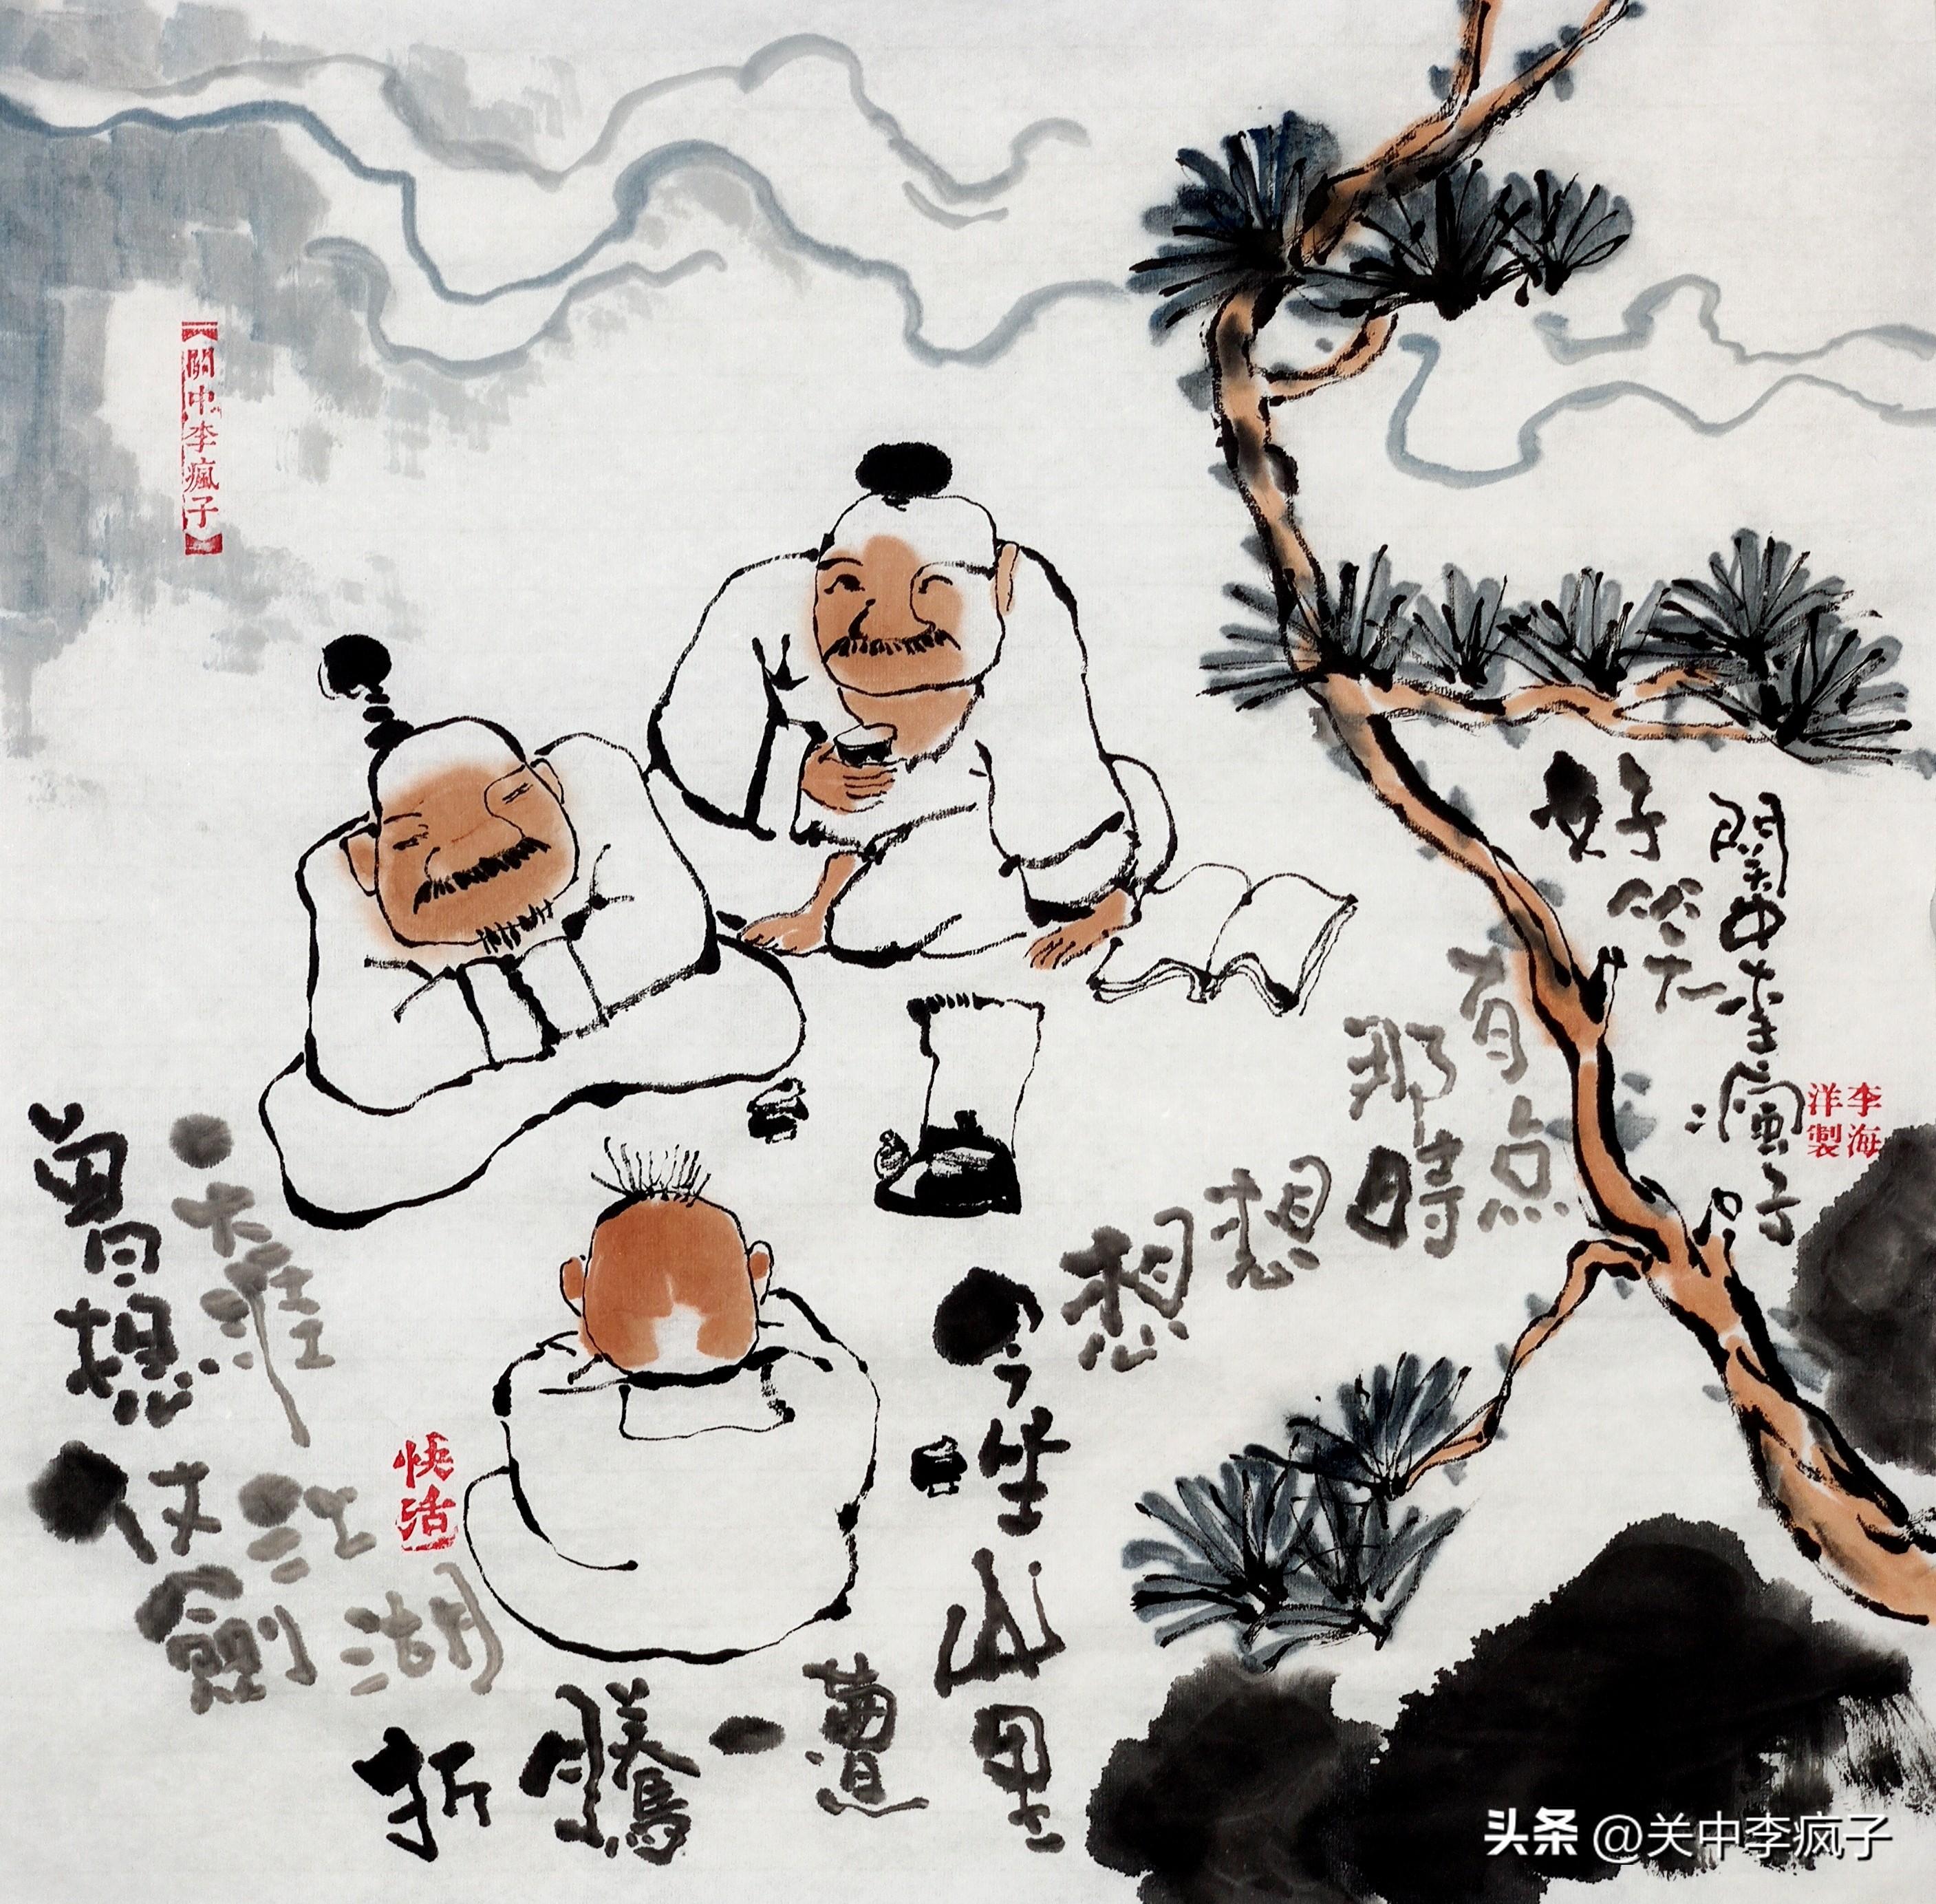 【關中李瘋子】
曾想
仗劍
江湖
折騰一遭
今坐山里
想想那時
有点
好笑
関中李瘋子
李海洋製
快活
头条 @关中李疯子